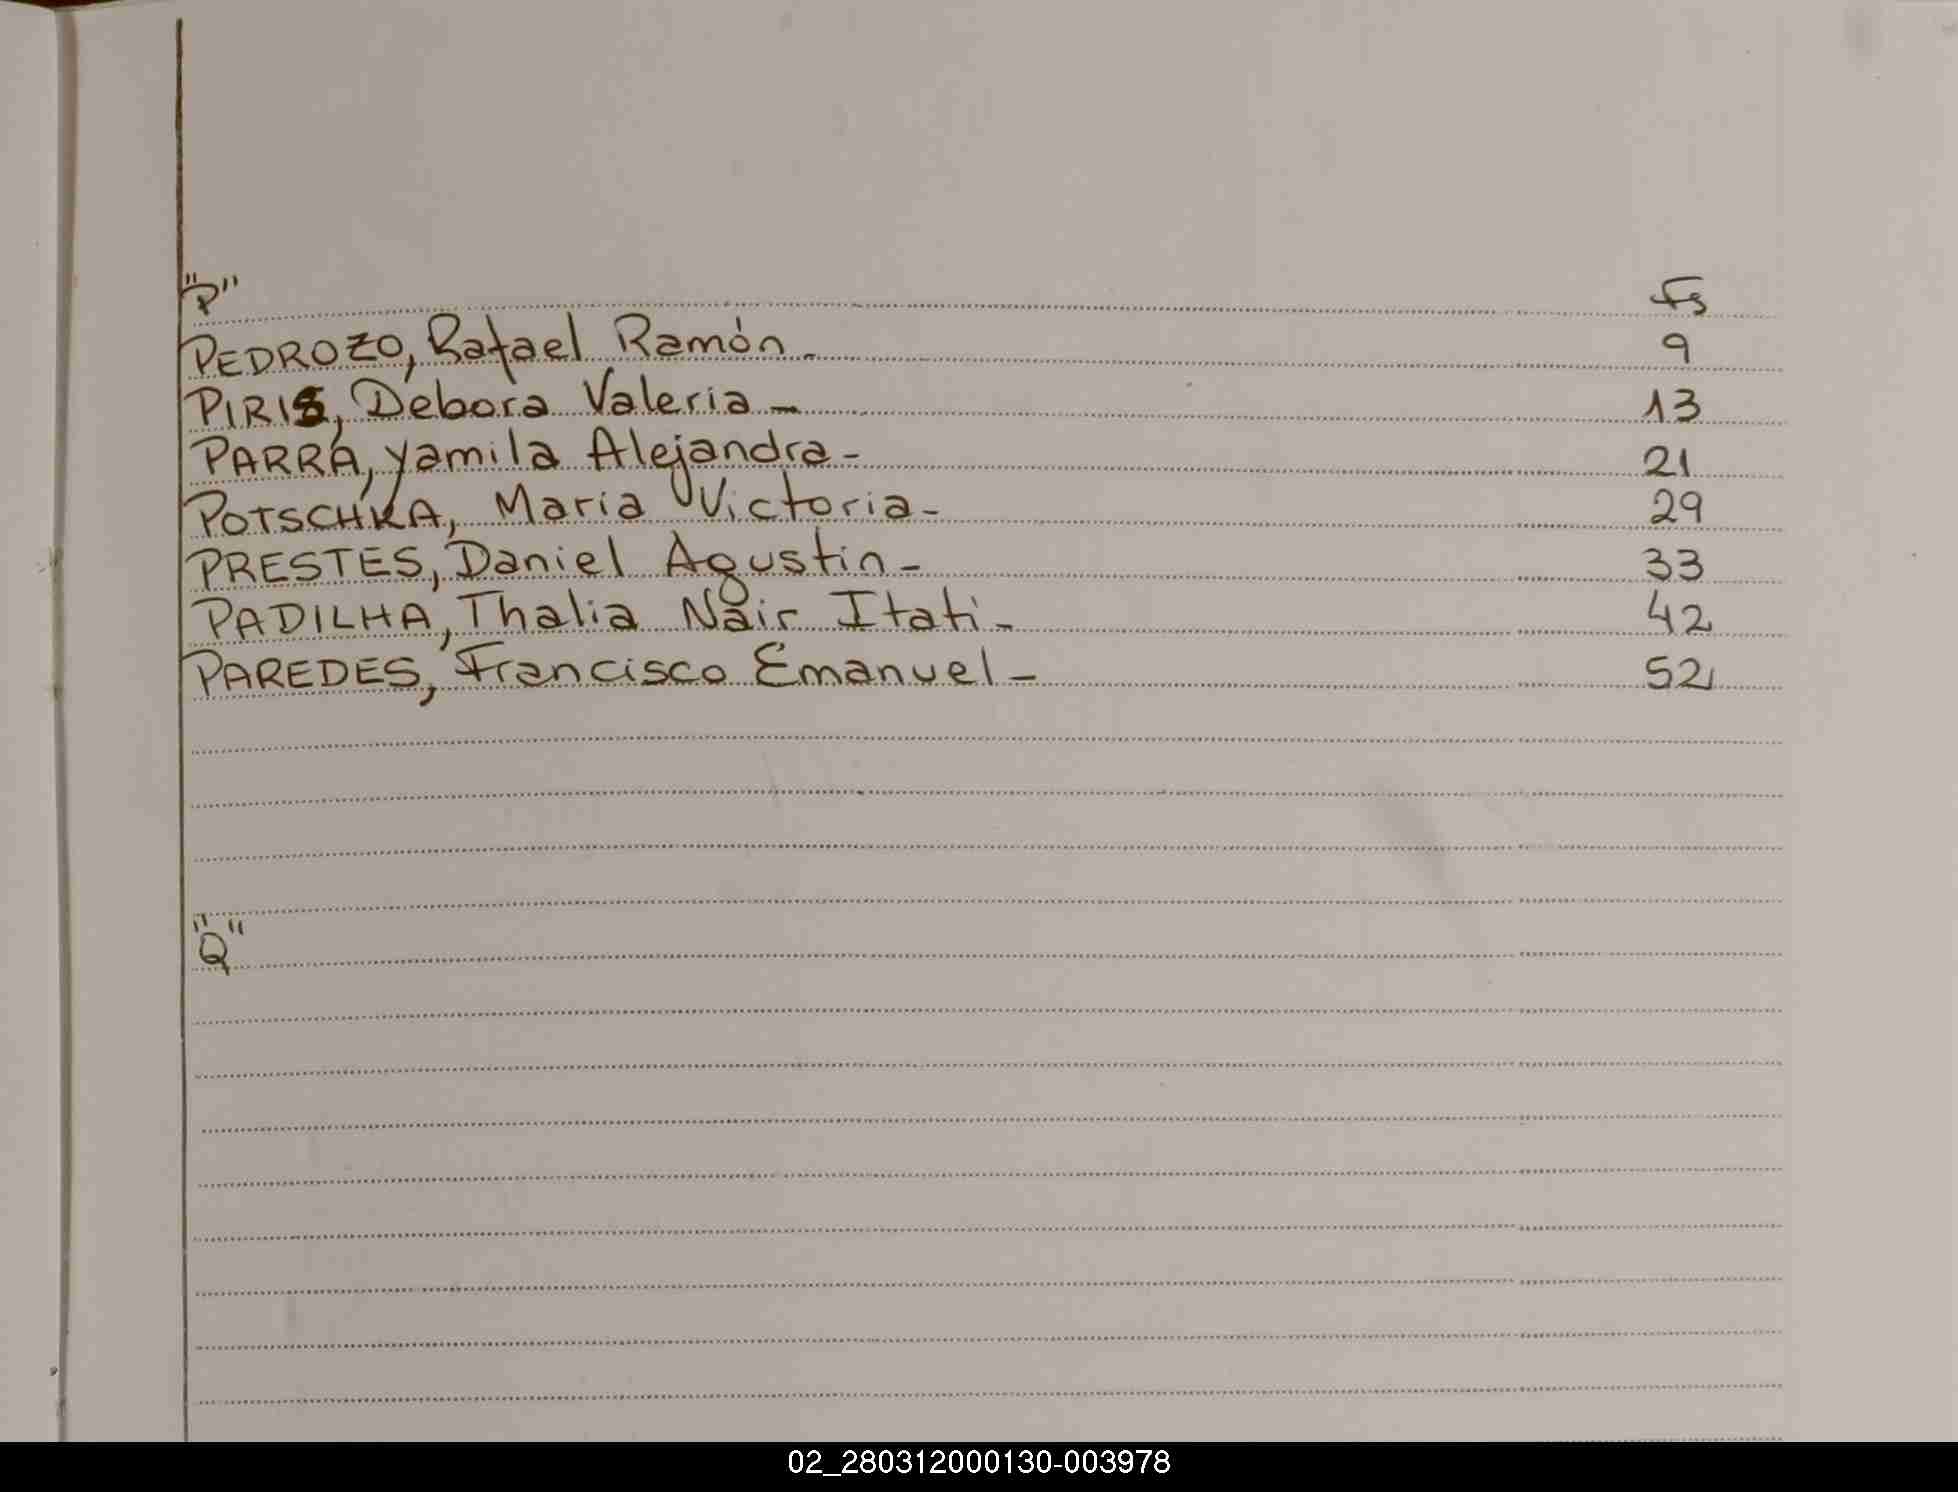 "P" Fs
PEDROZO, Rafael Ramón- 9
PIRIS, Debora Valeria- 13
PARRA, Yamila Alejandra- 21
POTSCHKA, Maria Victoria- 29
PRESTES, Daniel Agustin- 33
PADILHA, Thalia Nair Itati- 42
PAREDES, Francisco Emanuel- 52
"Q"
02_280312000130-003978